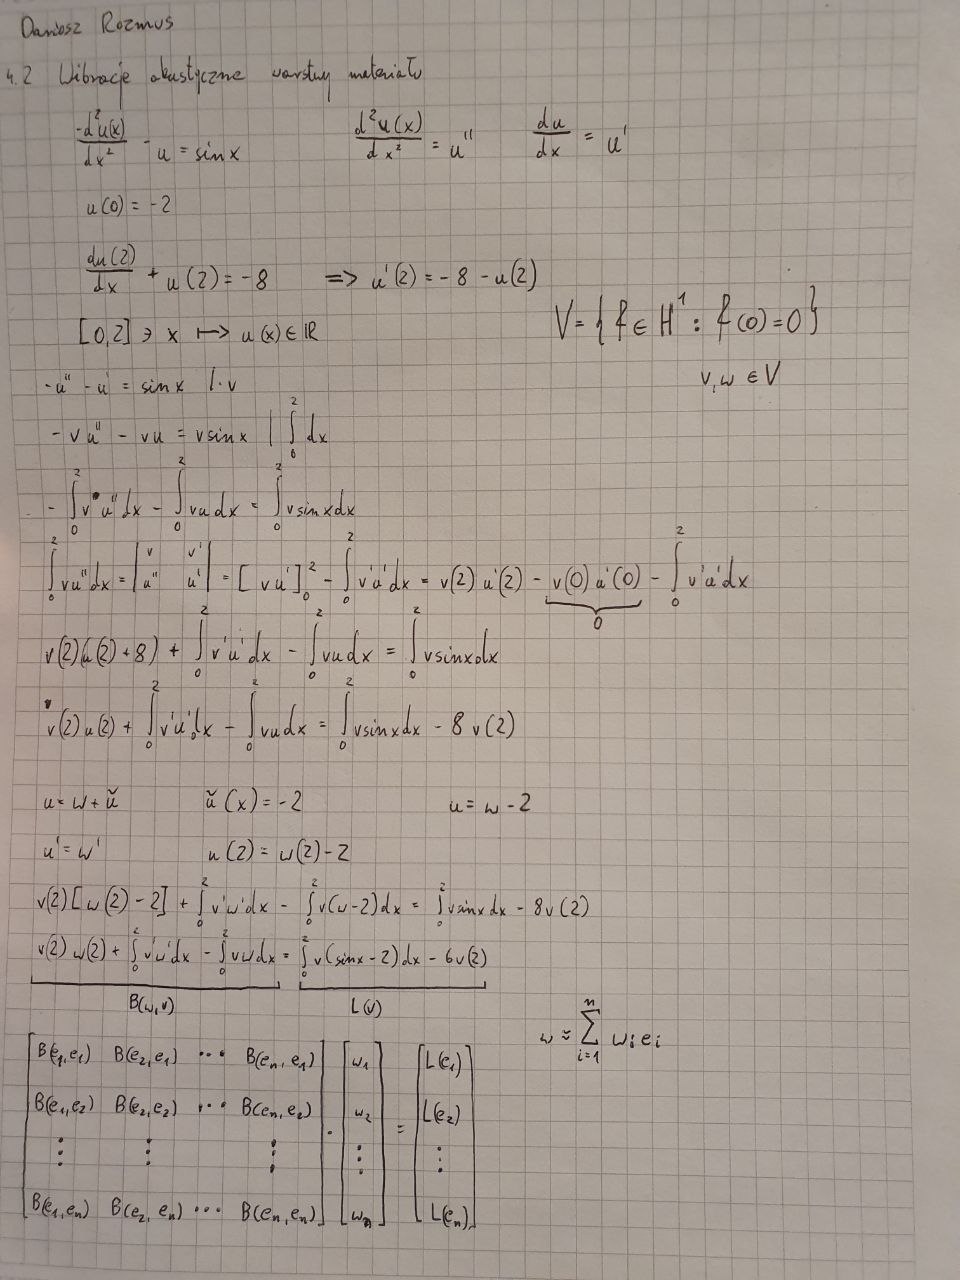 Dariusz Rozmus
4.2 Wibracje akustyczne warstwy materiału
-d²u(x)/dx² - u = sin x    d²u(x)/dx² = u''    du/dx = u'
u(0) = -2
du(2)/dx + u(2) = -8 => u'(2) = -8 - u(2)
V = {f ∈ H¹ : f(0) = 0}
[0,2] ∋ x ↦ u(x) ∈ ℝ
v, w ∈ V
-u'' - u = sin x | · v
-vu'' - vu = v sin x | ∫₀² dx
-∫₀² v u'' dx - ∫₀² vu dx = ∫₀² v sin x dx
∫₀² vu'' dx = | v v' ; u'' u' | = [vu']₀² - ∫₀² v'u' dx = v(2) u'(2) - v(0) u'(0) - ∫₀² v'u' dx
0
v(2)(u(2) + 8) + ∫₀² v'u' dx - ∫₀² vu dx = ∫₀² v sin x dx
v(2) u(2) + ∫₀² v'u' dx - ∫₀² vu dx = ∫₀² v sin x dx - 8 v(2)
u = w + ũ    ũ(x) = -2    u = w - 2
u' = w'    u(2) = w(2) - 2
v(2)[w(2) - 2] + ∫₀² v'w' dx - ∫₀² v(w - 2) dx = ∫₀² v sin x dx - 8v(2)
v(2) w(2) + ∫₀² v'w' dx - ∫₀² vw dx = ∫₀² v(sin x - 2) dx - 6v(2)
B(w,v)    L(v)
w ≈ ∑ᵢ₌₁ⁿ wᵢeᵢ
B(e₁,e₁) B(e₂,e₁) ··· B(eₙ,e₁)    w₁    L(e₁)
B(e₁,e₂) B(e₂,e₂) ··· B(eₙ,e₂) · w₂ = L(e₂)
⋮ ⋮ ⋮ ⋮ ⋮
B(e₁,eₙ) B(e₂,eₙ) ··· B(eₙ,eₙ)    wₙ    L(eₙ)